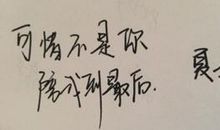 可惜不是你
陪我到最后.
夏